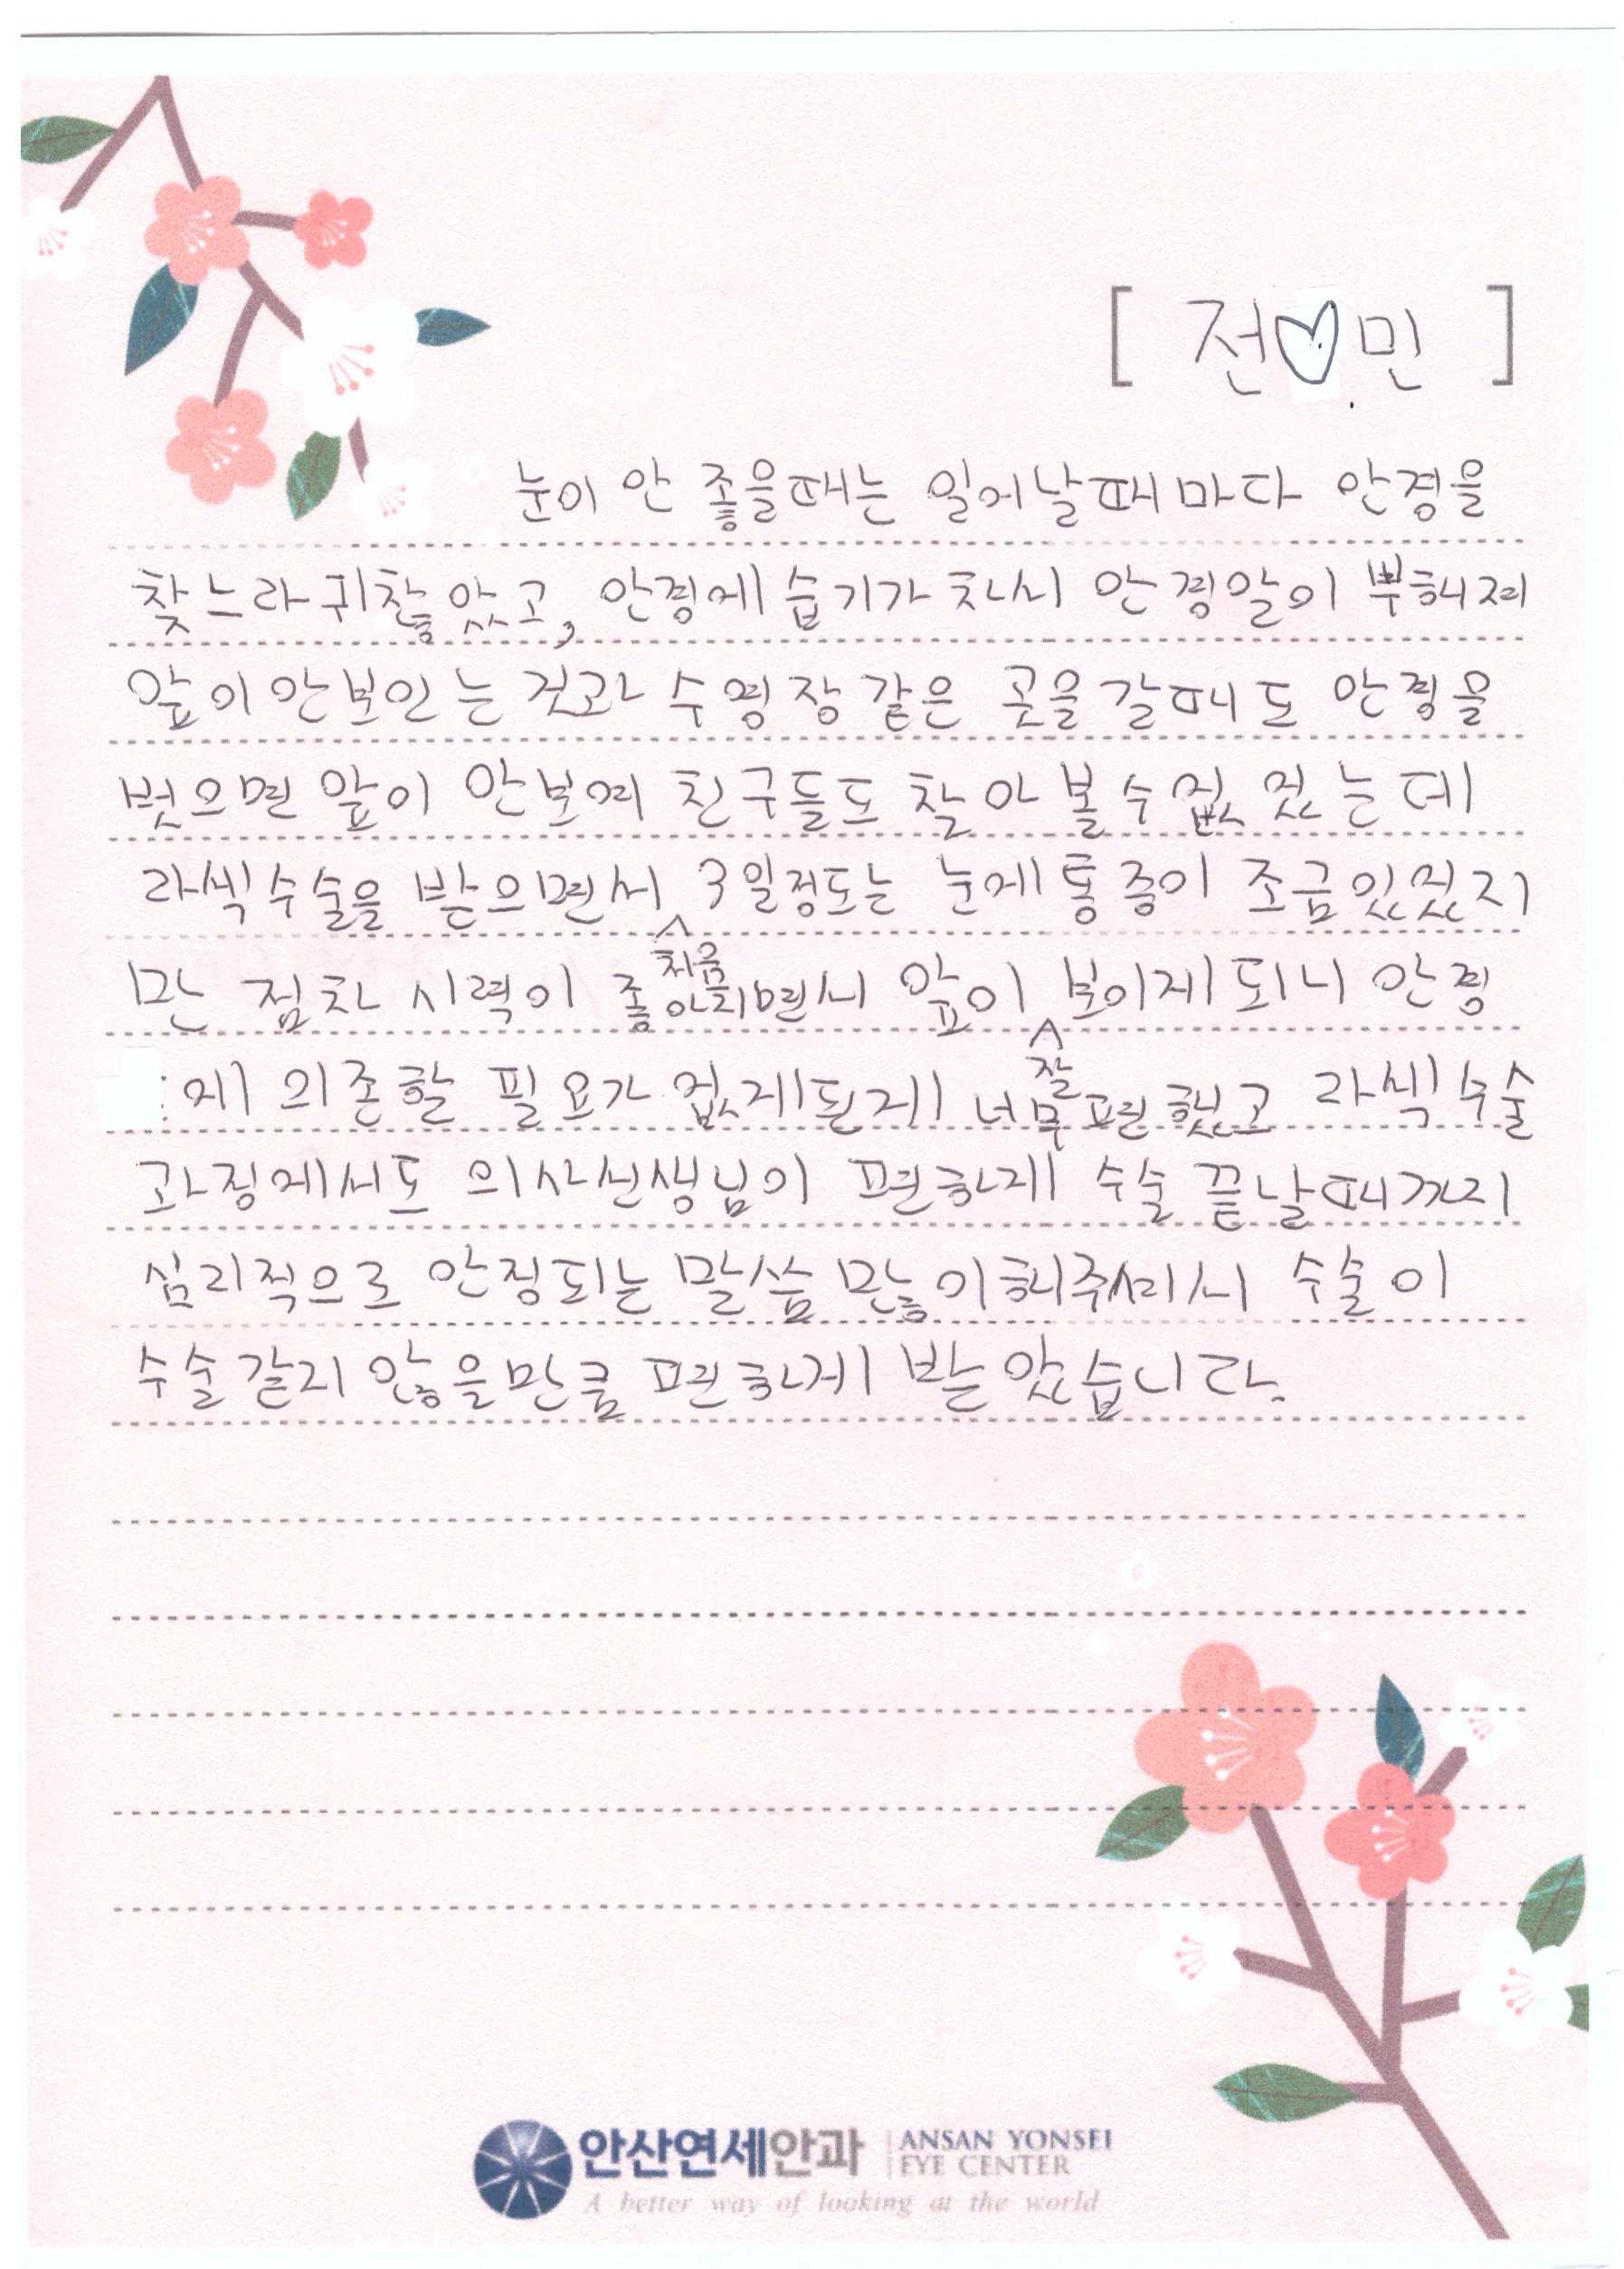 [ 전♡민 ]
눈이 안 좋을때는 일어날때마다 안경을
찾느라 귀찮았고, 안경에 습기가 차서 안경알이 뿌해져
앞이 안보인는 것과 수영장 같은 곳을 갈때도 안경을
벗으면 앞이 안보여 친구들도 찾아볼수없었는데
라섹수술을 받으면서 3일정도는 눈에 통증이 조금있었지
처음
만 점차 시력이 좋아지면서 앞이 보이게 되니 안경
잘
에 의존할 필요가 없게된게 너무 편했고 라섹 수술
과정에서도 의사선생님이 편하게 수술 끝날때까지
심리적으로 안정되는 말씀 많이해주셔서 수술이
수술같지 않을만큼 편하게 받았습니다.
안산연세안과 ANSAN YONSEI
EYE CENTER
A better way of looking at the world